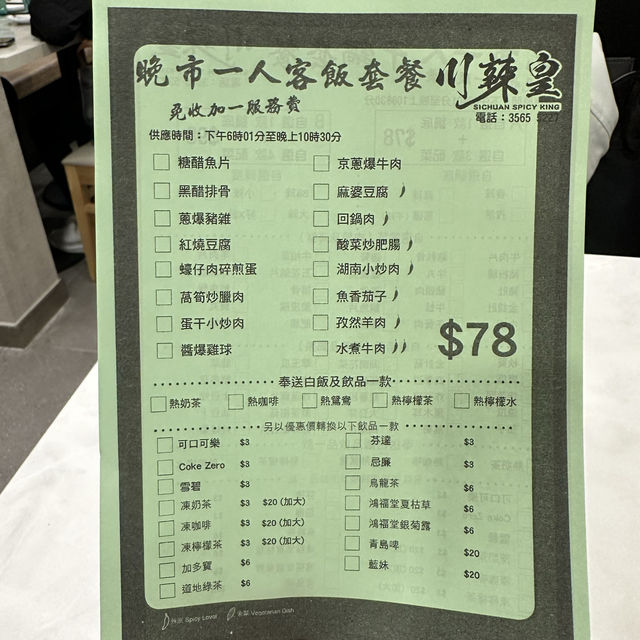 晚市一人客飯套餐 川辣皇
SICHUAN SPICY KING
免收加一服務費
電話：3565 5227
供應時間：下午6時01分至晚上10時30分
糖醋魚片 京蔥爆牛肉
黑醋排骨 麻婆豆腐
蔥爆豬雜 回鍋肉
紅燒豆腐 酸菜炒肥腸
蠔仔肉碎煎蛋 湖南小炒肉
萵筍炒臘肉 魚香茄子
蛋干小炒肉 孜然羊肉
醬爆雞球 水煮牛肉
$78
奉送白飯及飲品一款
熱奶茶 熱咖啡 熱鴛鴦 熱檸檬茶 熱檸檬水
另以優惠價轉換以下飲品一款
可口可樂 $3 芬達 $3
Coke Zero $3 忌廉 $3
雪碧 $3 烏龍茶 $6
凍奶茶 $3 $20 (加大) 鴻福堂夏枯草 $6
凍咖啡 $3 $20 (加大) 鴻福堂銀菊露 $6
凍檸檬茶 $3 $20 (加大) 青島啤 $20
加多寶 $6 藍妹 $20
道地綠茶 $6
辣度 Spicy Level 素菜 Vegetarian Dish